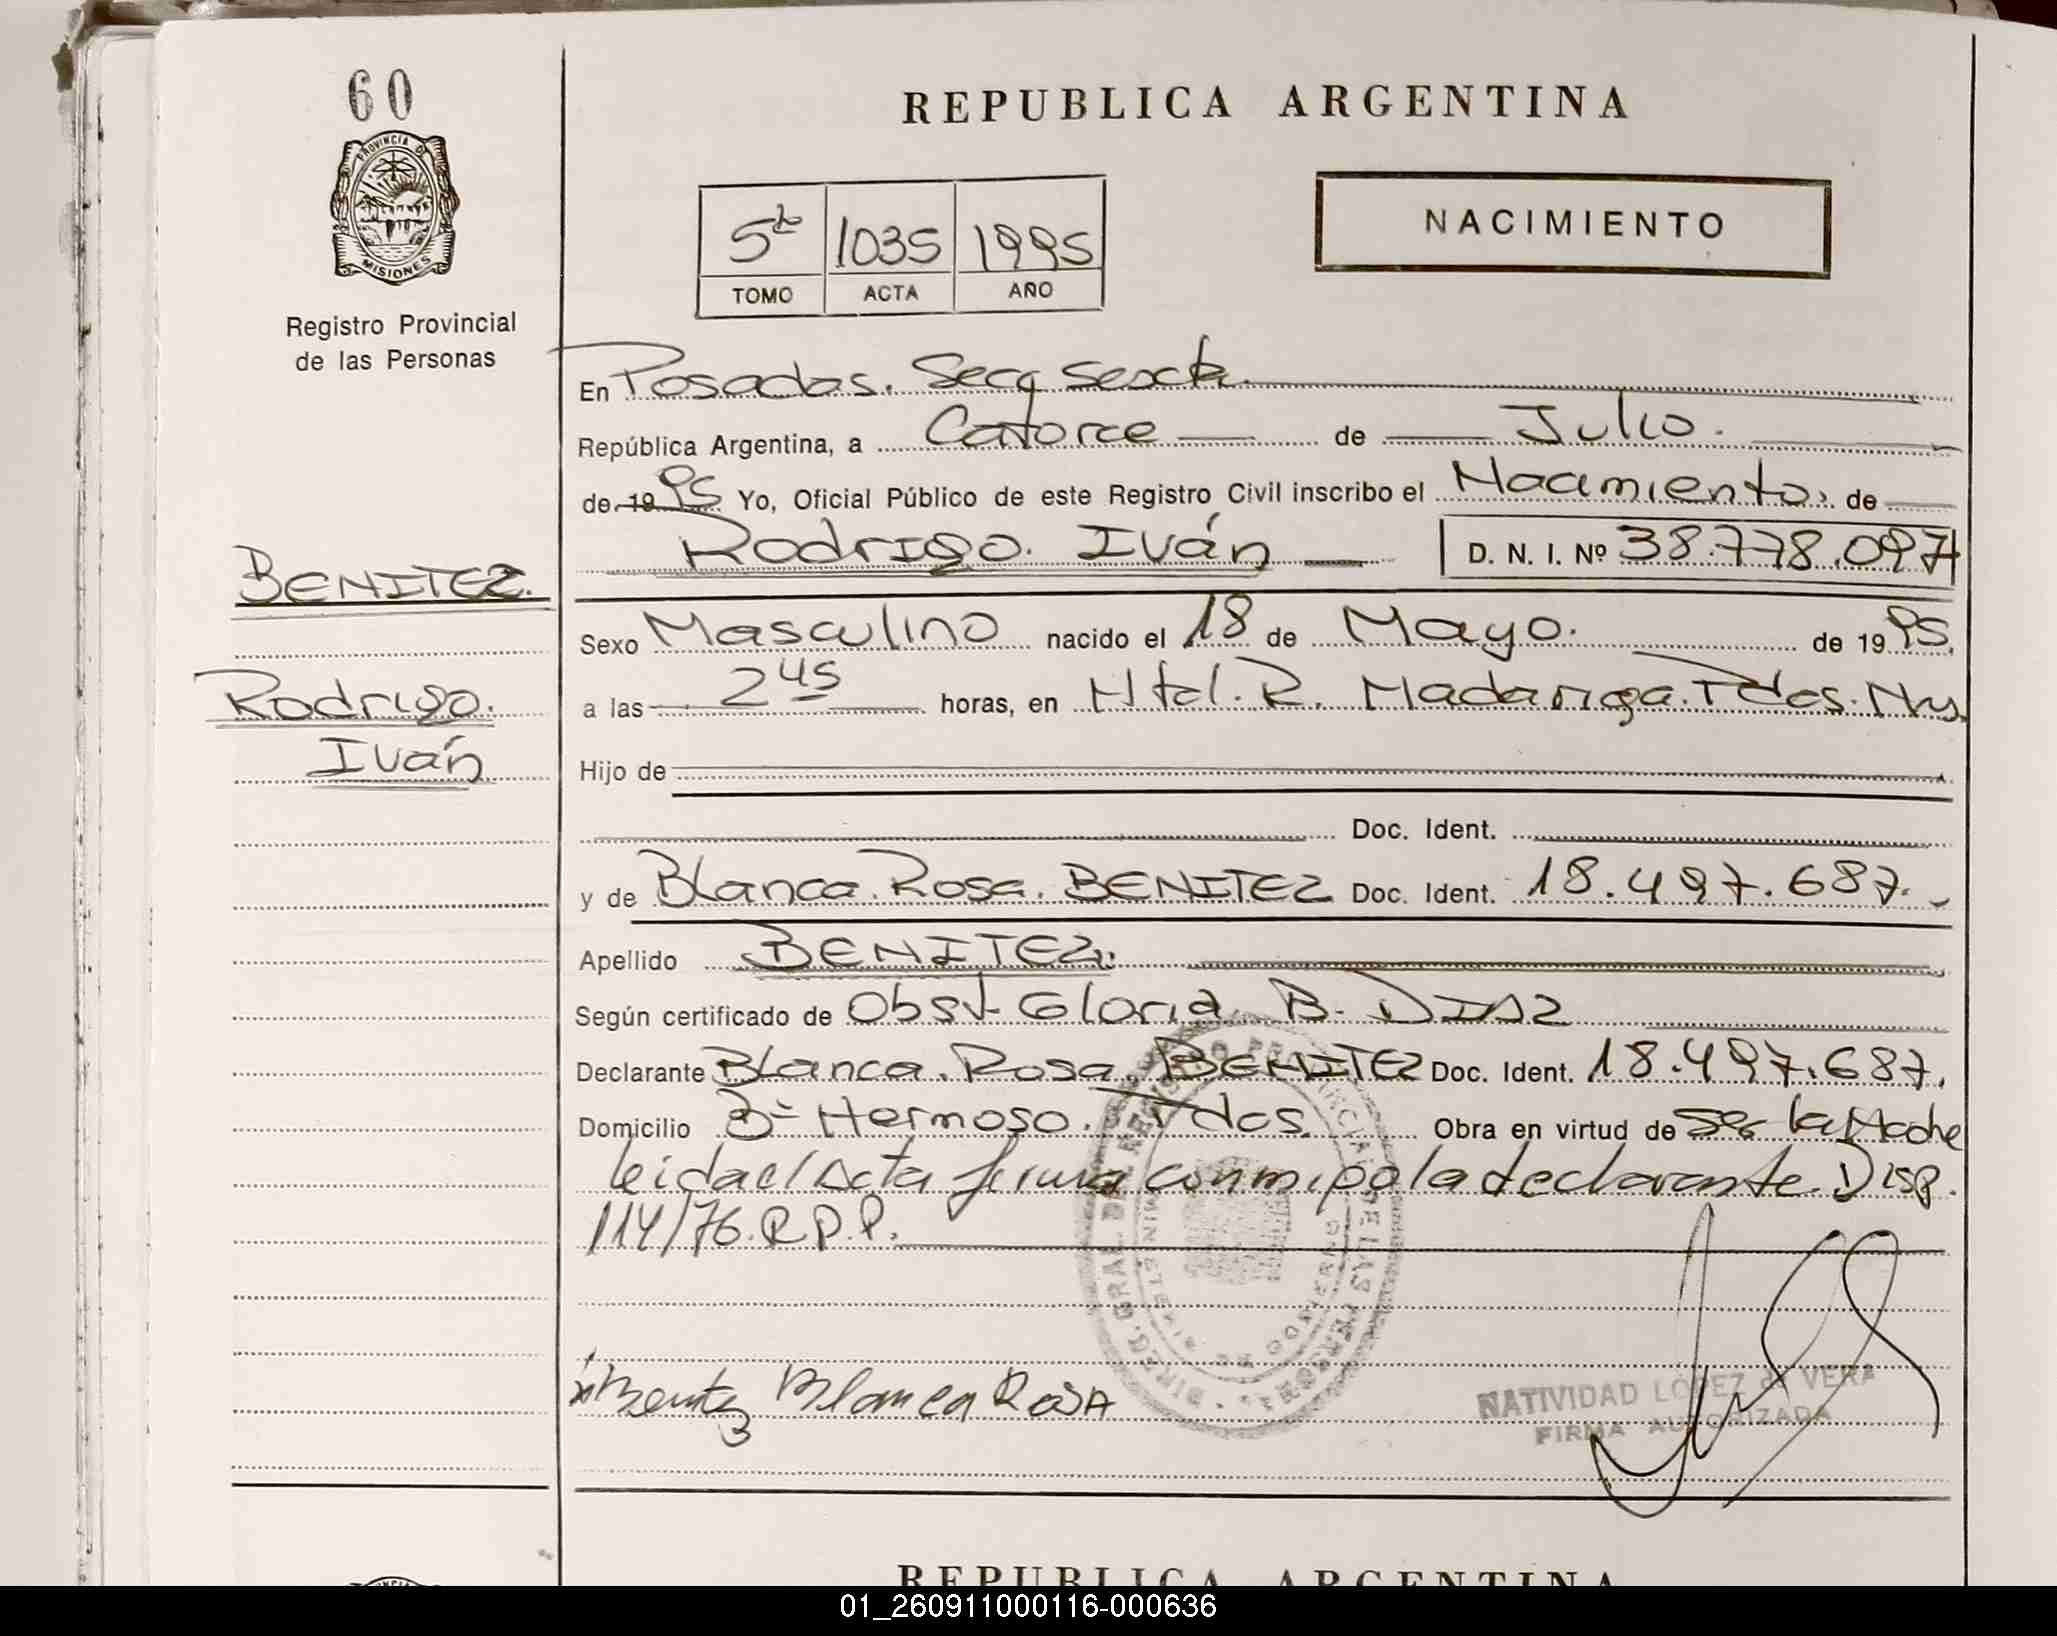 60
PROVINCIA DE
MISIONES
Registro Provincial
de las Personas
BENITEZ.
Rodrigo.
Iván
REPUBLICA ARGENTINA
NACIMIENTO
5to 1035 1995
TOMO ACTA AÑO
En Posadas. Secc Sexta.
República Argentina, a Catorce de Julio.
de 1995 Yo, Oficial Público de este Registro Civil inscribo el Nacimiento. de
Rodrigo. Iván D. N. I. Nº 38.778.097
Sexo Masculino nacido el 18 de Mayo. de 1995.
a las 2 45 horas, en Htal. R. Madariaga. Pdas. Mns.
Hijo de
Doc. Ident.
y de Blanca. Rosa. BENITEZ Doc. Ident. 18.497.687.
Apellido BENITEZ.
Según certificado de Obst. Gloria. B. DIAZ
Declarante Blanca. Rosa. BENITEZ Doc. Ident. 18.497.687.
Domicilio Bº Hermoso. Pdas. Obra en virtud de ser la Madre
leida el Acta firma conmigo la declarante. Disp.
114/76.R.P.P.
Benitez Blanca Rosa
NATIVIDAD LOPEZ de VERA
FIRMA AUTORIZADA
REPUBLICA ARGENTINA
01_260911000116-000636